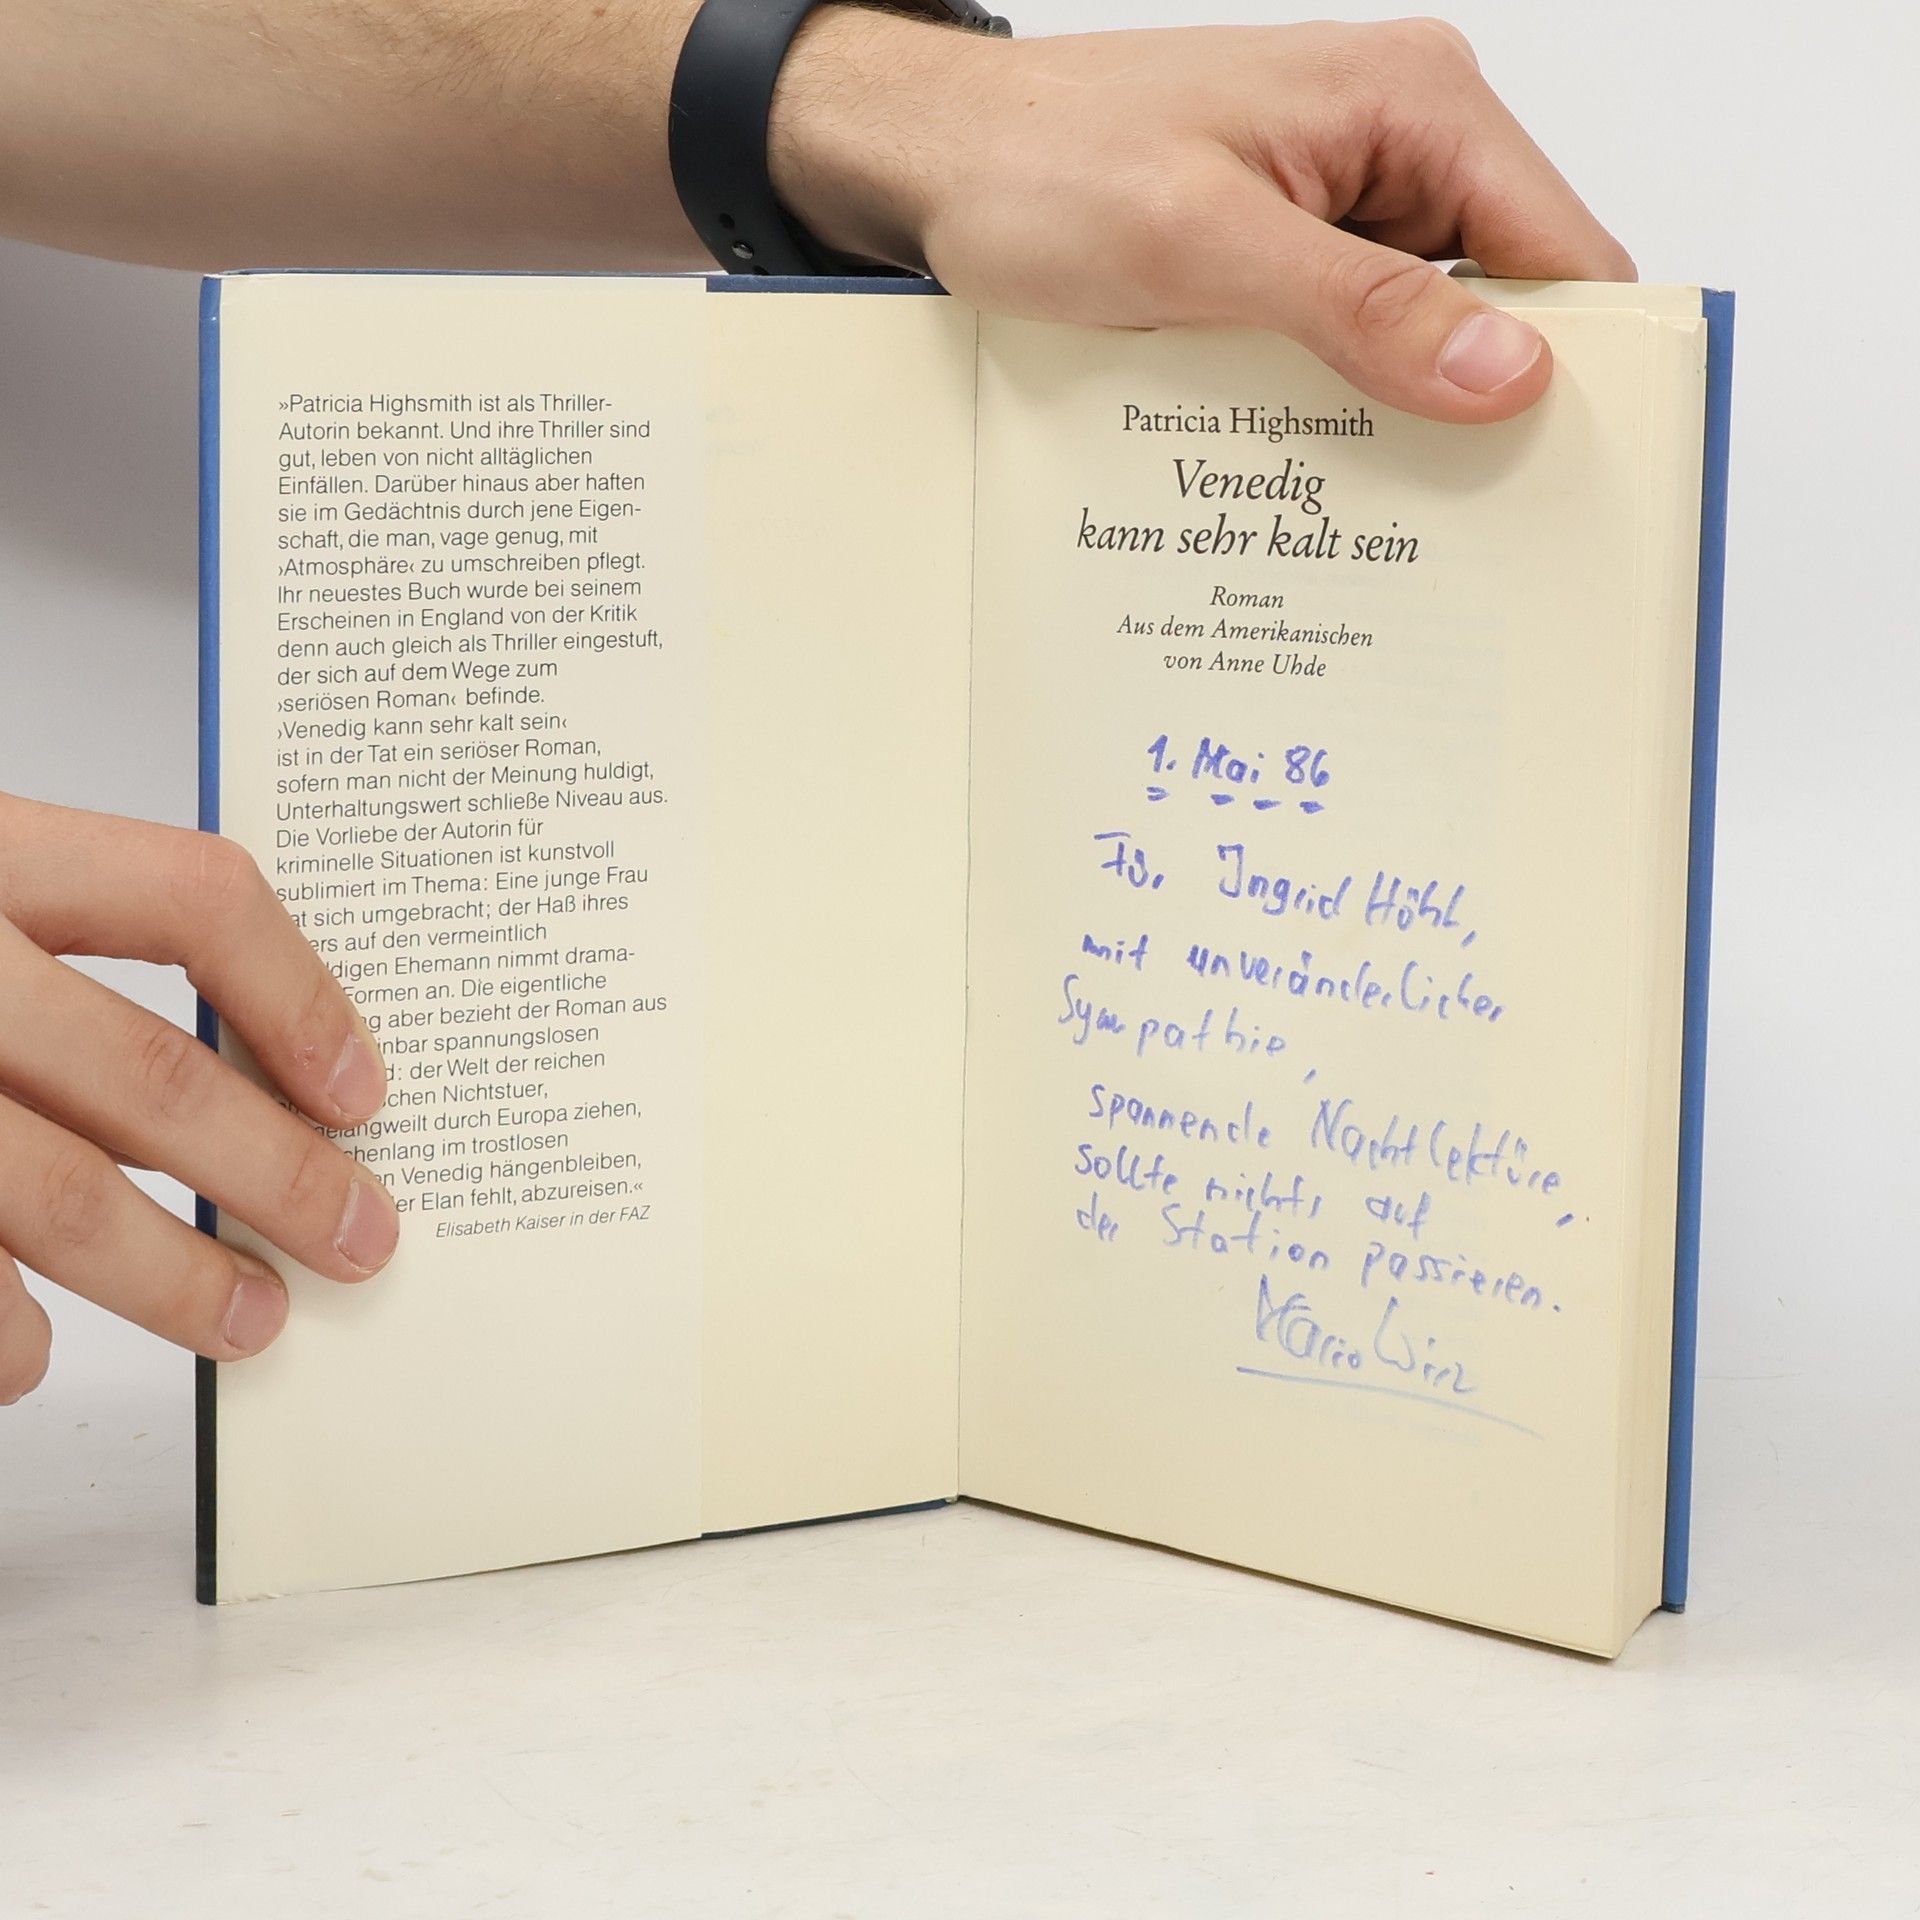 »Patricia Highsmith ist als Thriller-
Autorin bekannt. Und ihre Thriller sind
gut, leben von nicht alltäglichen
Einfällen. Darüber hinaus aber haften
sie im Gedächtnis durch jene Eigen-
schaft, die man, vage genug, mit
›Atmosphäre‹ zu umschreiben pflegt.
Ihr neuestes Buch wurde bei seinem
Erscheinen in England von der Kritik
denn auch gleich als Thriller eingestuft,
der sich auf dem Wege zum
›seriösen Roman‹ befinde.
›Venedig kann sehr kalt sein‹
ist in der Tat ein seriöser Roman,
sofern man nicht der Meinung huldigt,
Unterhaltungswert schließe Niveau aus.
Die Vorliebe der Autorin für
kriminelle Situationen ist kunstvoll
sublimiert im Thema: Eine junge Frau
at sich umgebracht; der Haß ihres
ers auf den vermeintlich
ldigen Ehemann nimmt drama-
Formen an. Die eigentliche
ng aber bezieht der Roman aus
inbar spannungslosen
d: der Welt der reichen
schen Nichtstuer,
gelangweilt durch Europa ziehen,
chenlang im trostlosen
en Venedig hängenbleiben,
er Elan fehlt, abzureisen.«
Elisabeth Kaiser in der FAZ
Patricia Highsmith
Venedig
kann sehr kalt sein
Roman
Aus dem Amerikanischen
von Anne Uhde
1. Mai 86
Ingrid Höhl,
mit unveränderlicher
Sympathie,
spannende Nachtlektüre,
sollte nichts auf
der Station passieren.
Mario Wirz